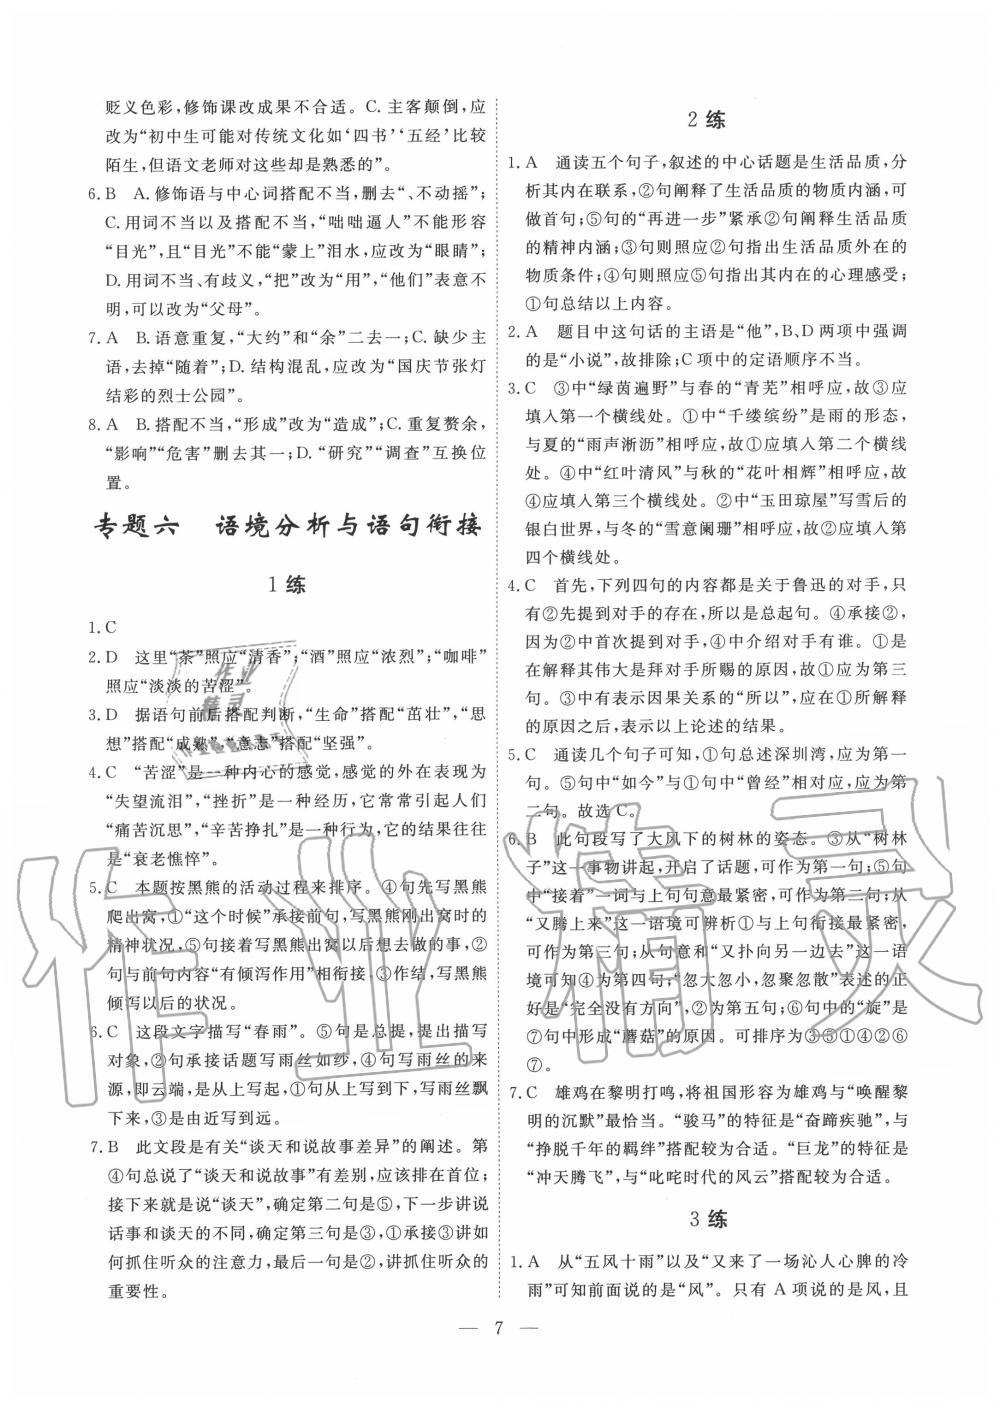 贬义色彩，修饰课改成果不合适。C. 主客颠倒，应
改为“初中生可能对传统文化如‘四书’‘五经’比较
陌生，但语文老师对这些却是熟悉的”。
6. B　A. 修饰语与中心词搭配不当，删去“、不动摇”；
C. 用词不当以及搭配不当，“咄咄逼人”不能形容
“目光”，且“目光”不能“蒙上”泪水，应改为“眼睛”；
D. 用词不当、有歧义，“把”改为“用”，“他们”表意不
明，可以改为“父母”。
7. A　B. 语意重复，“大约”和“余”二去一；C. 缺少主
语，去掉“随着”；D. 结构混乱，应改为“国庆节张灯
结彩的烈士公园”。
8. A　B. 搭配不当，“形成”改为“造成”；C. 重复赘余，
“影响”“危害”删去其一；D. “研究”“调查”互换位
置。
专题六　语境分析与语句衔接
1 练
1. C
2. D　这里“茶”照应“清香”；“酒”照应“浓烈”；“咖啡”
照应“淡淡的苦涩”。
3. D　据语句前后搭配判断，“生命”搭配“茁壮”，“思
想”搭配“成熟”，“意志”搭配“坚强”。
4. C　“苦涩”是一种内心的感觉，感觉的外在表现为
“失望流泪”，“挫折”是一种经历，它常常引起人们
“痛苦沉思”，“辛苦挣扎”是一种行为，它的结果往往
是“衰老憔悴”。
5. C　本题按黑熊的活动过程来排序。④句先写黑熊
爬出窝，①“这个时候”承接前句，写黑熊刚出窝时的
精神状况，⑤句接着写黑熊出窝以后想去做的事，②
句与前句内容“有倾泻作用”相衔接，③作结，写黑熊
倾泻以后的状况。
6. C　这段文字描写“春雨”。⑤句是总提，提出描写
对象，②句承接话题写雨丝如纱，④句写雨丝的来
源，即云端，是从上写起，①句从上写到下，写雨丝飘
下来，③是由近写到远。
7. B　此文段是有关“谈天和说故事差异”的阐述。第
④句总说了“谈天和说故事”有差别，应该排在首位；
接下来就是说“谈天”，确定第二句是⑤，下一步讲说
话事和谈天的不同，确定第三句是③，①承接③讲如
何抓住听众的注意力，最后一句是②，讲抓住听众的
重要性。
2 练
1. A　通读五个句子，叙述的中心话题是生活品质，分
析其内在联系，②句阐释了生活品质的物质内涵，可
做首句；⑤句的“再进一步”紧承②句阐释生活品质
的精神内涵；③句则照应②句指出生活品质外在的
物质条件；④句则照应⑤句指出其内在的心理感受；
①句总结以上内容。
2. A　题目中这句话的主语是“他”，B、D 两项中强调
的是“小说”，故排除；C 项中的定语顺序不当。
3. C　③中“绿茵遍野”与春的“青芜”相呼应，故③应
填入第一个横线处。①中“千缕缤纷”是雨的形态，
与夏的“雨声淅沥”相呼应，故①应填入第二个横线
处。④中“红叶清风”与秋的“花叶相辉”相呼应，故
④应填入第三个横线处。②中“玉田琼屋”写雪后的
银白世界，与冬的“雪意阑珊”相呼应，故②应填入第
四个横线处。
4. C　首先，下列四句的内容都是关于鲁迅的对手，只
有②先提到对手的存在，所以是总起句。④承接②，
因为②中首次提到对手，④中介绍对手有谁。①是
在解释其伟大是拜对手所赐的原因，应为第三
句。③中有表示因果关系的“所以”，应在①所解释
的原因之后，表示以上论述的结果。
5. C　通读几个句子可知，①句总述深圳湾，应为第一
句。⑤句中“如今”与①句中“曾经”相对应，应为第
二句。故选 C。
6. B　此句段写了大风下的树林的姿态。③从“树林
子”这一事物讲起，开启了话题，可作为第一句；⑤句
中“接着”一词与上句句意最紧密，可作为第二句；从
“又腾上来”这一语境可辨析①与上句衔接最紧密，
可作为第三句；从句意和“又扑向另一边去”这一语
境可知④为第四句；“忽大忽小，忽聚忽散”表述的正
好是“完全没有方向”，②为第五句；⑥句中的“旋”是
⑦句中形成“蘑菇”的原因。可排序为③⑤①④②⑥
⑦。
7. C　雄鸡在黎明打鸣，将祖国形容为雄鸡与“唤醒黎
明的沉默”最恰当。“骏马”的特征是“奋蹄疾驰”，与
“挣脱千年的羁绊”搭配较为合适。“巨龙”的特征是
“冲天腾飞”，与“叱咤时代的风云”搭配较为合适。
3 练
1. A　从“五风十雨”以及“又来了一场沁人心脾的冷
雨”可知前面说的是“风”。只有 A 项说的是风，且
— 7 —
作业精灵
作业
精灵